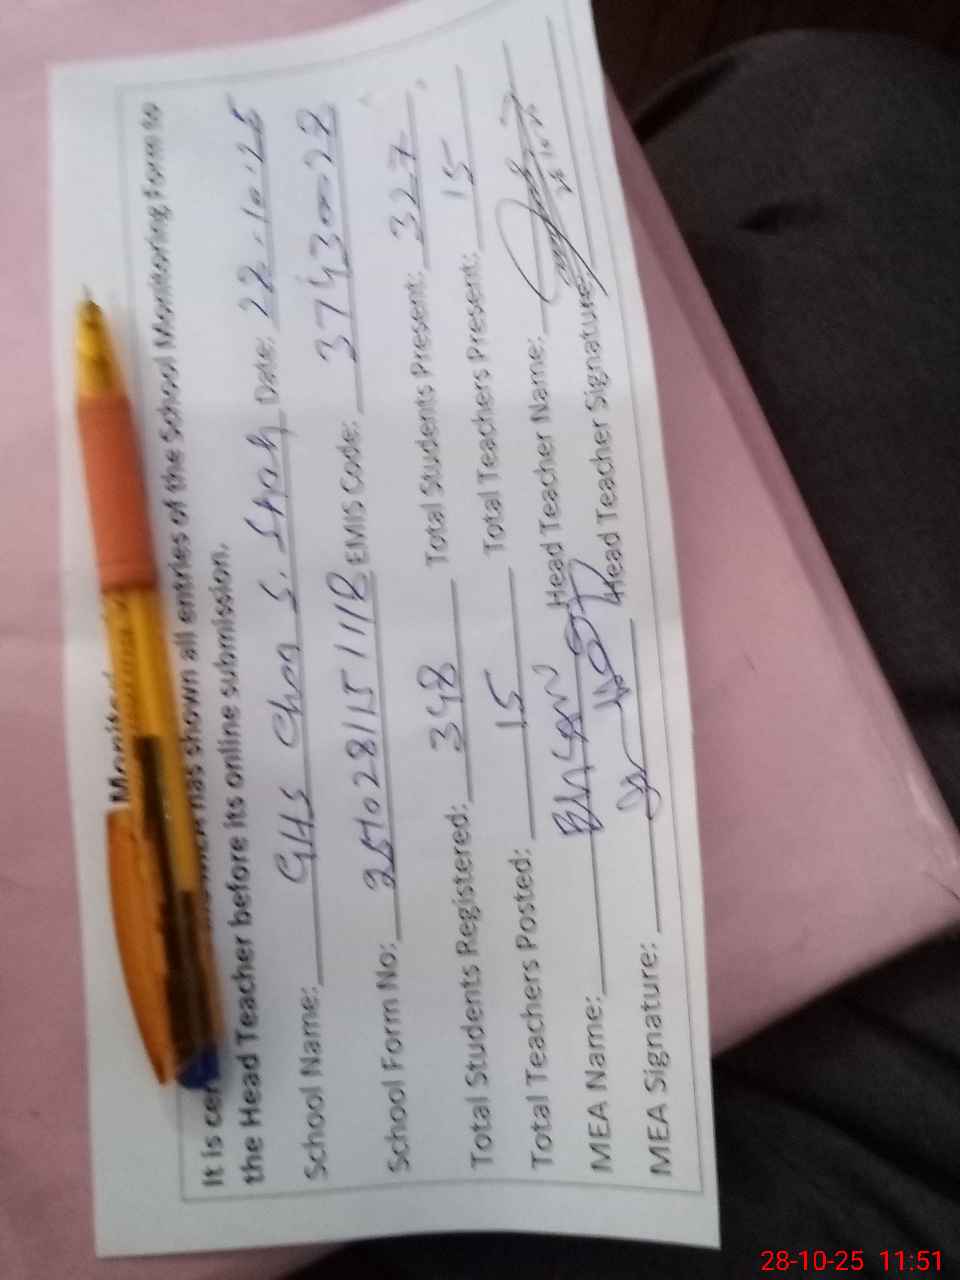 It is cer has shown all entries of the School Monitoring Form to
the Head Teacher before its online submission.
School Name: GHS Chan S. Shah Date: 22.10.25
School Form No: EMIS Code: 37430028
Total Students Registered: 348 Total Students Present: 327
Total Teachers Posted: 15 Total Teachers Present: 15
MEA Name: Head Teacher Name:
MEA Signature: Head Teacher Signature:
28-10-25 11:51